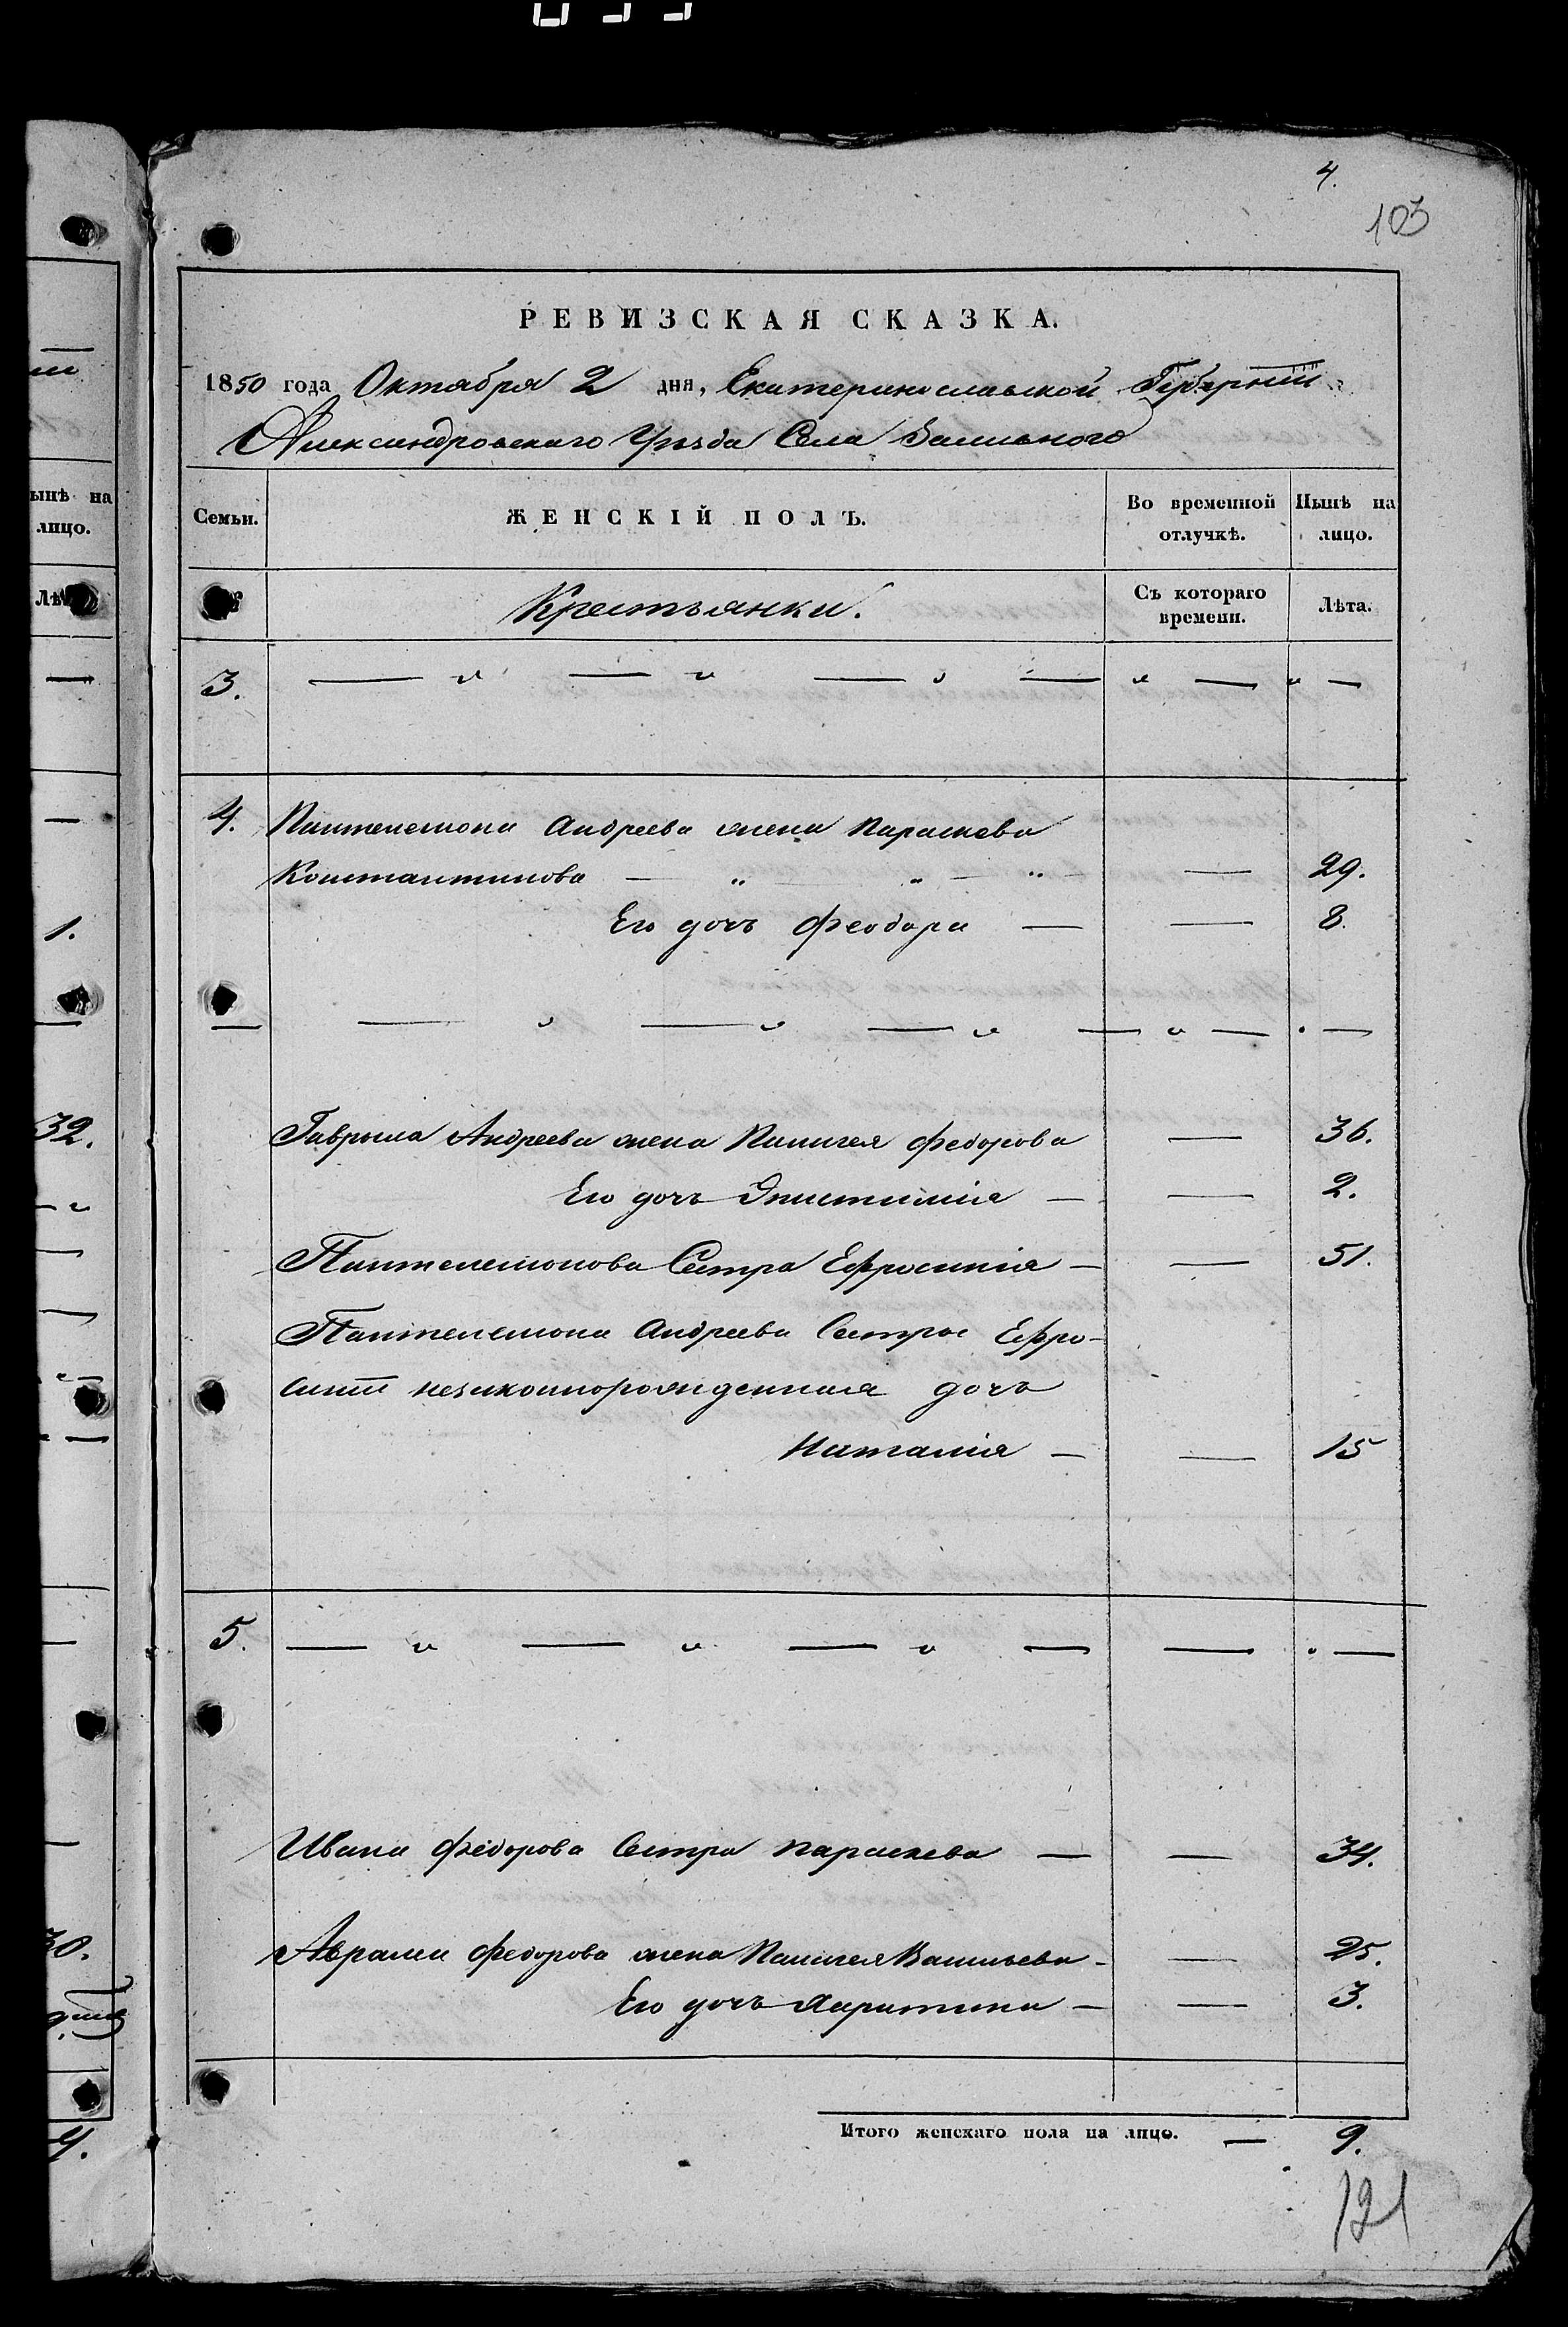 4.
103
РЕВИЗСКАЯ СКАЗКА.
1850 года Октября 2 дня, Екатеринославской Губерніи
Александровскаго Уѣзда Села
Семьи. ЖЕНСКІЙ ПОЛЪ. Во временной отлучкѣ. Нынѣ на лицо.
№ Крестьянки. Съ котораго времени. Лѣта.
3. — „ — „ — „ — „ — „ —
4. Пантелемона Андреева жена Параскева
Константинова — „ „ — „ — 29.
Его дочь Феодора — — 8.
— — „ — „ — „ — „ — „ —
Гаврыла Андреева жена Пелагея Федорова — 36.
Его дочь Эпистимія — — 2.
Пантелемонова Сестра Ефросинія — — 51.
Пантелемона Андреева Сестры Ефро-
синіи незаконнорожденная дочь
Наталія — — 15
5. — „ — „ — „ — — „ —
Ивана Федорова Сестра Параскева — — 34.
Аврама Федорова жена Пелагея Васильева - — 25.
Его дочь Харитина — — 3.
Итого женскаго пола на лицо. — 9.
121
ынѣ на
лицо.
Лѣ
1.
32.
30.
4.